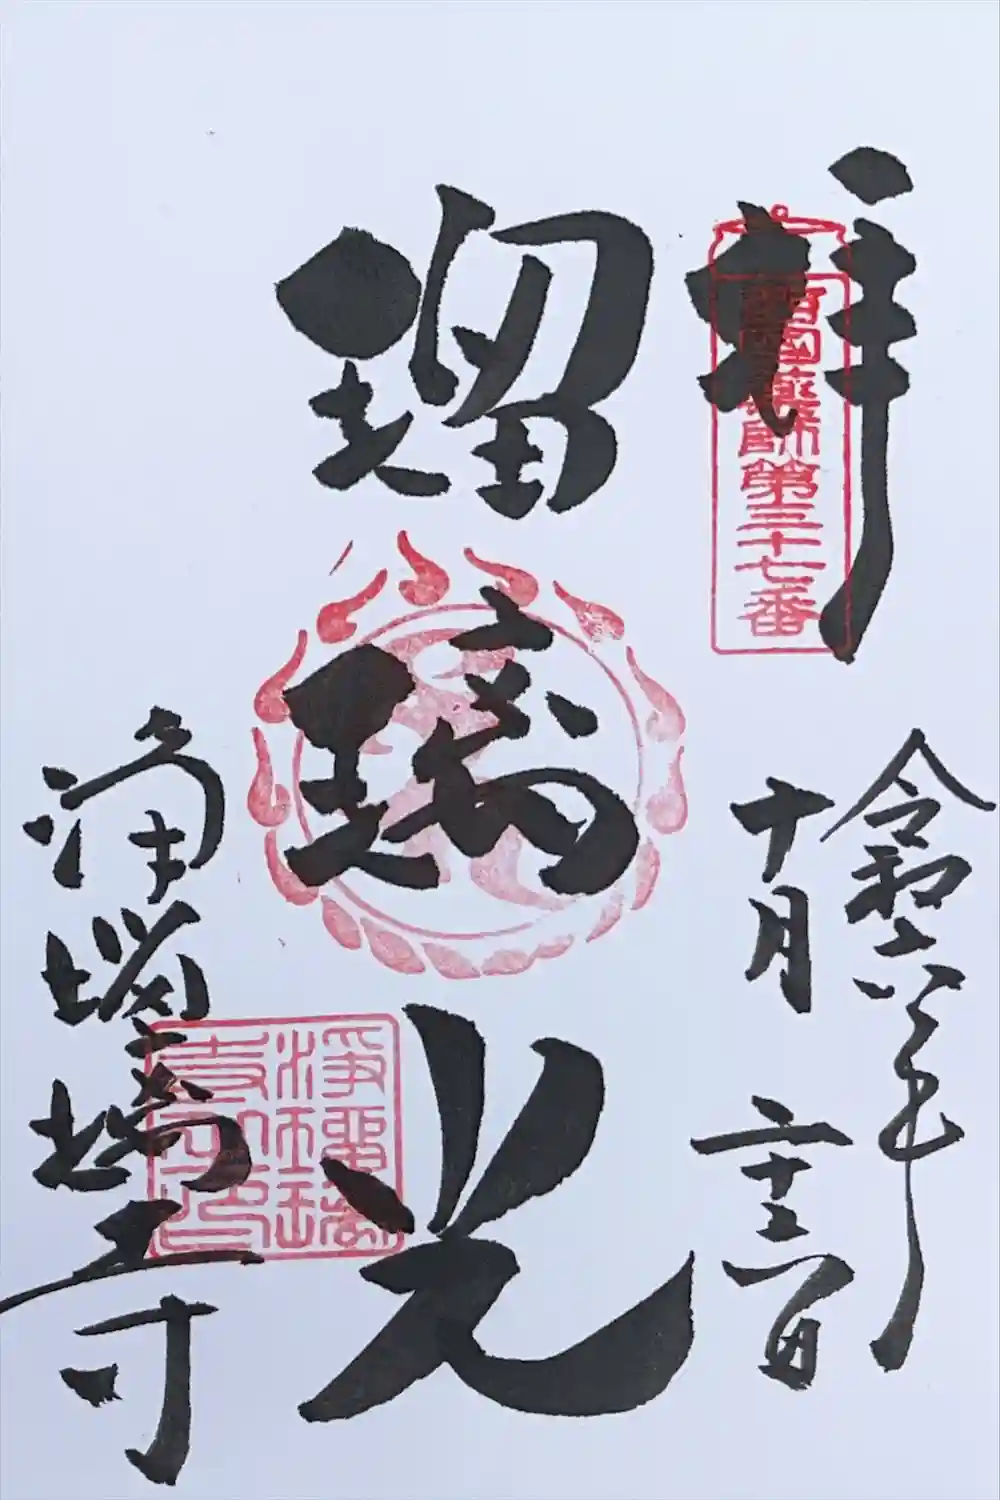 拝
西国薬師第三十七番
令和六年
十月二十三日
瑠璃光
浄瑠璃寺
浄瑠璃